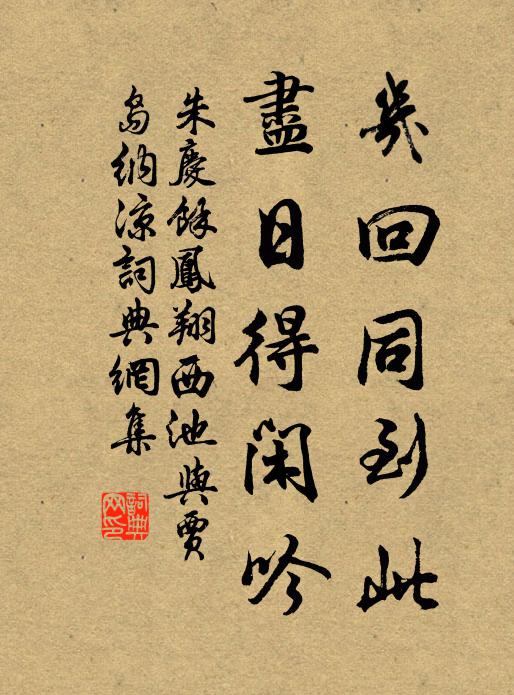 幾回同到此
盡日得閑吟
朱慶餘鳳翔西池與賈
島納涼詞典網集
詞典
网印